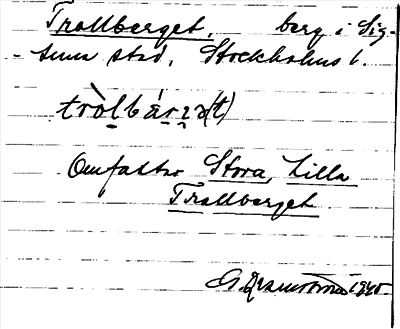 Trollberget, berg i Sig-
tuna stad, Stockholms l.
tròlbárȷə(t)
Omfattar Stora, Lilla
Trollberget.
1940.